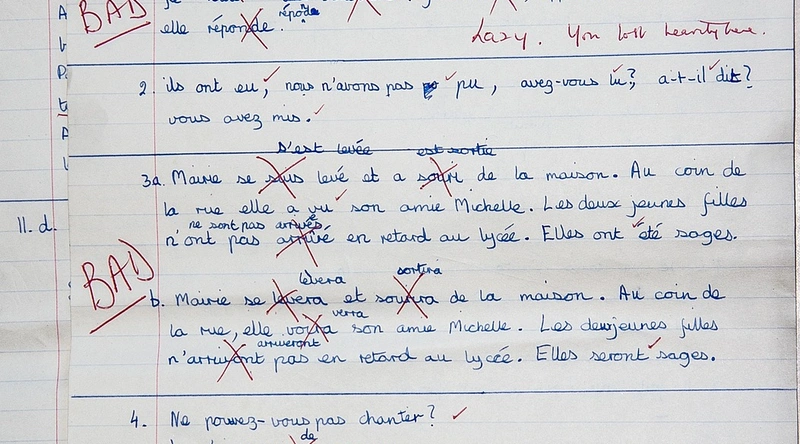 BAD
elle réponde.
répode
Lazy. You lost heavily here.
2. ils ont eu, nous n'avons pas pu, avez-vous lu? a-t-il dit?
vous avez mis.
S'est levée est sortie
3a. Mairie se sous levé et a souri de la maison. Au coin de
la rue elle a vu son amie Michelle. Les deux jeunes filles
ne sont pas arrivés
n'ont pas arrivé en retard au lycée. Elles ont été sages.
11. d.
BAD
lèvera sortira
b. Mairie se levera et sourira de la maison. Au coin de
verra
la rue, elle voira son amie Michelle. Les deux jeunes filles
arriveront
n'arriveront pas en retard au lycée. Elles seront sages.
4. Ne pouvez-vous pas chanter?
de